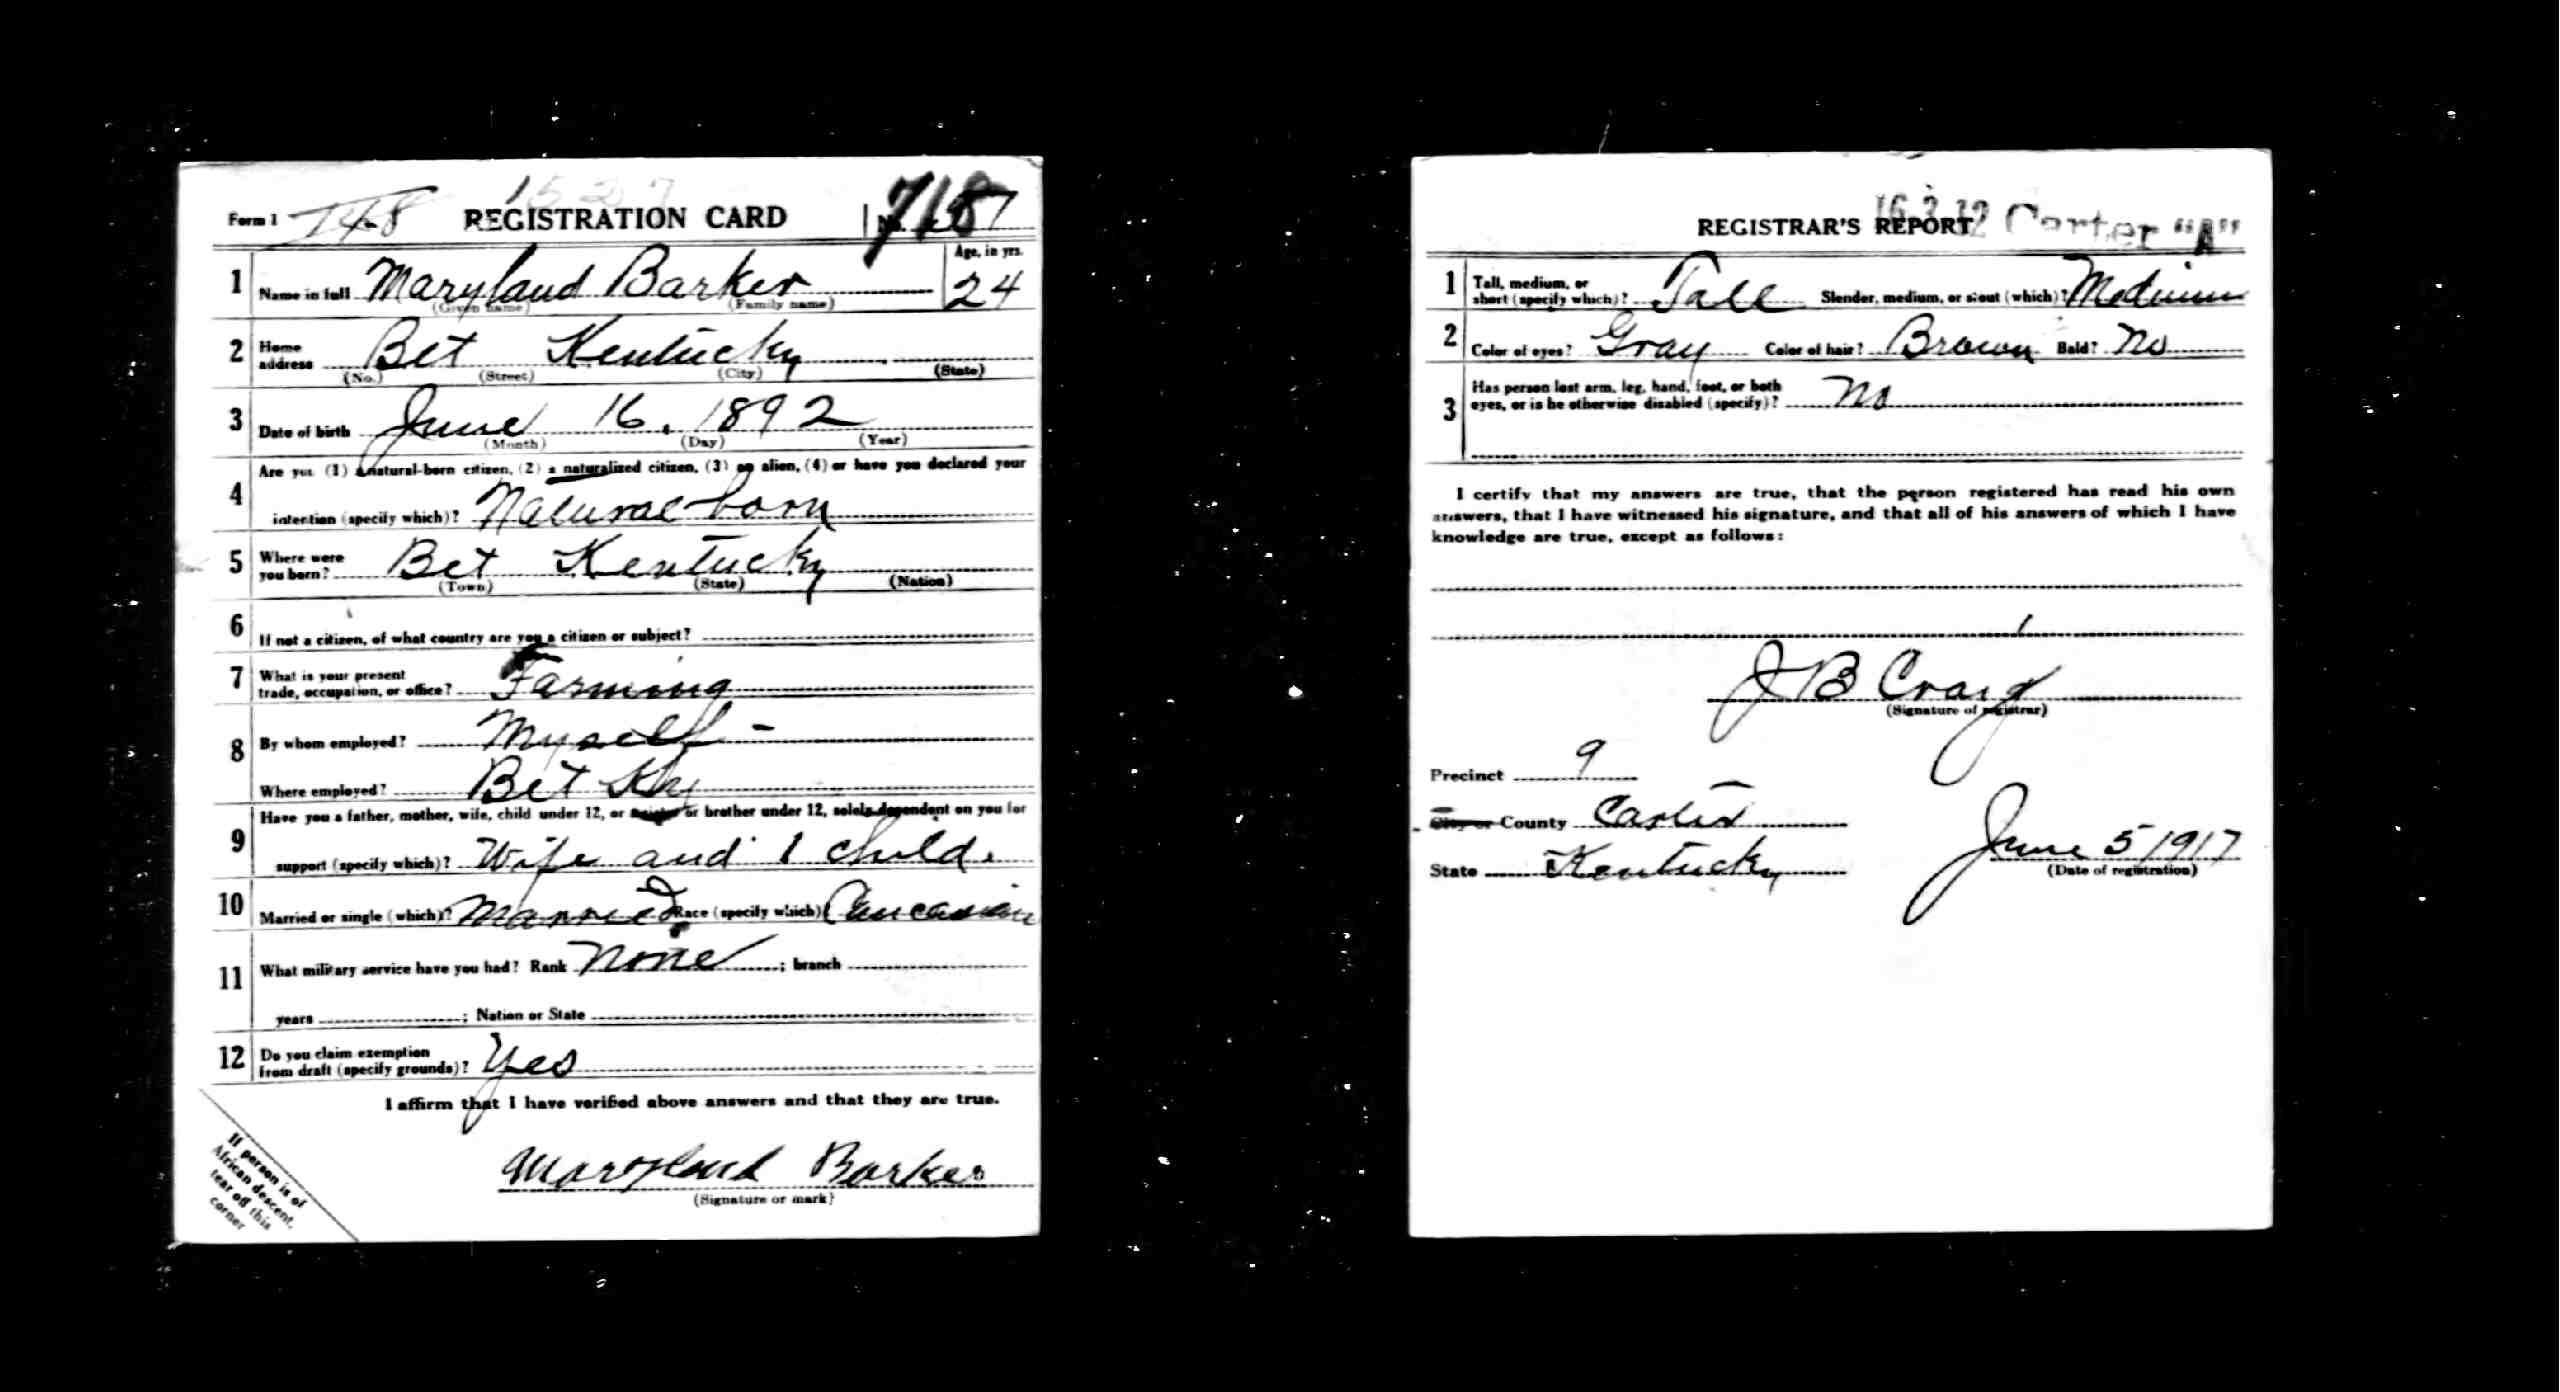 1527
Form 1 148 REGISTRATION CARD No. 718 7
1 Name in full Maryland Barker Age, in yrs. 24
(Given name) (Family name)
2 Home address Bet Kentucky
(No.) (Street) (City) (State)
3 Date of birth June 16, 1892
(Month) (Day) (Year)
4 Are you (1) a natural-born citizen, (2) a naturalized citizen, (3) an alien, (4) or have you declared your
intention (specify which)? Natural born
5 Where were you born? Bet Kentucky
(Town) (State) (Nation)
6 If not a citizen, of what country are you a citizen or subject?
7 What is your present
trade, occupation, or office? Farming
8 By whom employed? Myself -
Where employed? Bet Ky
9 Have you a father, mother, wife, child under 12, or sister or brother under 12, solely dependent on you for
support (specify which)? Wife and 1 child.
10 Married or single (which)? Married Race (specify which)? Caucasian
11 What military service have you had? Rank None ; branch
years ; Nation or State
12 Do you claim exemption
from draft (specify grounds)? Yes
I affirm that I have verified above answers and that they are true.
Maryland Barker
(Signature or mark)
If person is of
African descent,
tear off this
corner
16 3 12 Carter "A"
REGISTRAR'S REPORT
1 Tall, medium, or
short (specify which)? Tall Slender, medium, or stout (which)? Medium
2 Color of eyes? Gray Color of hair? Brown Bald? No
3 Has person lost arm, leg, hand, foot, or both
eyes, or is he otherwise disabled (specify)? No
I certify that my answers are true, that the person registered has read his own
answers, that I have witnessed his signature, and that all of his answers of which I have
knowledge are true, except as follows:
J B Craig
(Signature of registrar)
Precinct 9
City or County Carter
State Kentucky June 5 1917
(Date of registration)